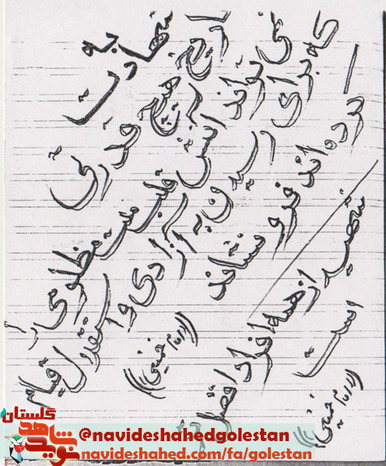 هیچ قدرتی
نمی تواند آتش قلب ملت مظلومی را
که برای رسیدن به آزادی و استقلال قیام
کرده اند فرو نشاند ((امام خمینی))
شهید از همه افراد افضل
است
((امام خمینی))
گلستان
نوید شاهد
@navideshahedgolestan
navideshahed.com/fa/golestan